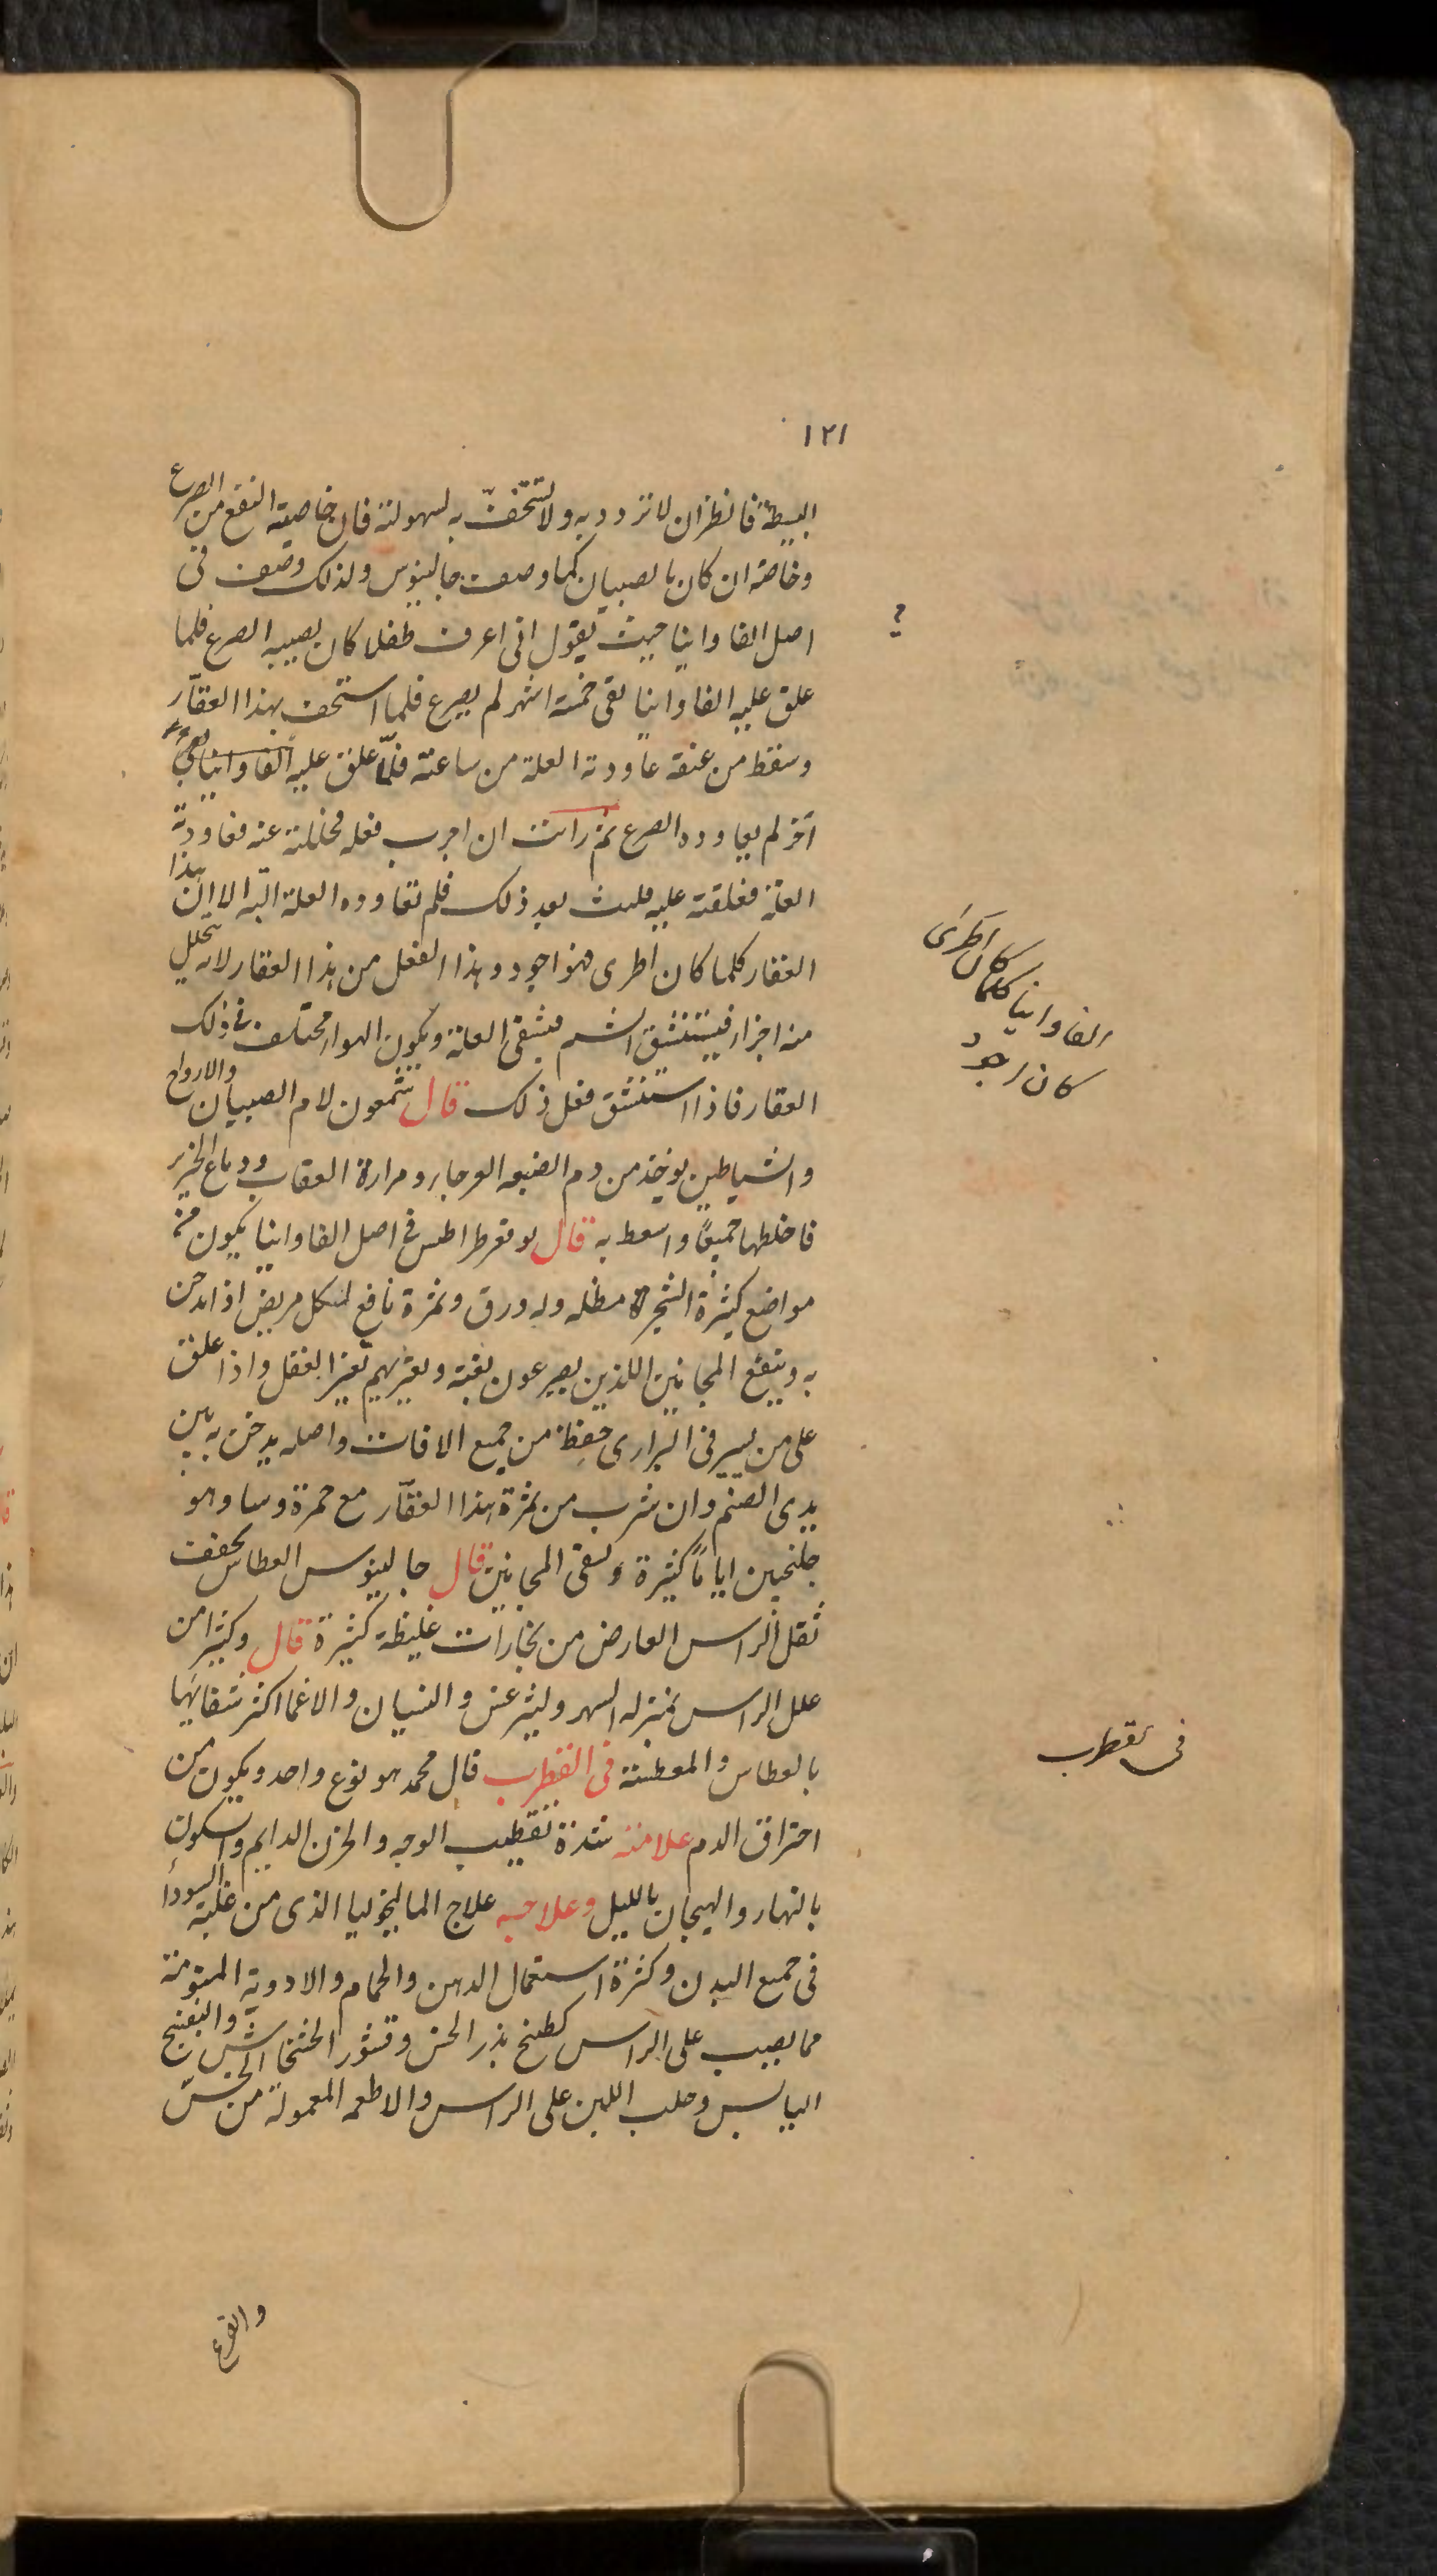 ١٢١
البسيطة فانظر ان لا تزدد به ولا تستخفّ به لسهولته فان خاصيته النفع من الصرع
وخاصة ان كان بالصبيان كما وصف جالينوس ولذلك وصف فى
اصل الفاوانيا حيث يقول انى اعرف طفلا كان يصيبه الصرع فلما
علق عليه الفاوانيا بقى خمسة اشهر لم يصرع فلما استخف بهذا العقّار
وسقط من عنقه عاودته العلة من ساعته فلما علق عليه الفاوانيا
آخر لم يعاوده الصرع ثم رأيت ان اجرب فعله عنه فعاودته
العلة فعلقته عليه بعد ذلك فلم تعاوده العلة البتة الا ان هذا
العقار كلما كان اطرى فهو اجود وهذا الفعل من هذا العقار لانه يتحلل
منه اجزاء فيستنشق فيشفى العلة ويكون الهواء فى ذلك
العقار فاذا استنشق فعل ذلك قال شمعون لام الصبيان والارواح
والشياطين يوخذ من دم الضبعه العرجاء ومرارة العقاب ودماغ الخنزير
فاخلطها جميعًا واسعط به قال فى اصل الفاوانيا يكون فى
مواضع كثيرة الشجرة مظله وله ورق وثمرة نافع لكل مريض اذا دخن
به وينفع المجانين اللذين يصرعون بغتة العقل واذا علق
على من يسير فى البرارى حفظه من جميع الافات واصله يدخن به بين
يدى الصنم وان شرب من ثمرة هذا العقّار مع
جلنجبين ايامًا كثيرة المجانين قال جالينوس العطاس يخفف
ثقل الراس العارض من بخارات غليظة كثيرة قال وكثيرا من
علل الراس بمنزله السهر وليثرغس والنسيان والاغما اكثر شفايها
بالعطاس والمعطسة فى القطرب قال محمد هو نوع واحد ويكون من
احتراق الدم علامته شدة تقطيب الوجه والحزن الدايم والسكون
بالنهار والهيجان بالليل وعلاجه علاج الماليخوليا الذى من غلبة السودا
فى جميع البدن وكثرة استعمال الدهن والحمام والادوية المنومة
مما يصب على الراس كطبيخ بذر الخس وقشور الخشخاش والبنفسج
اليابس وحلب اللبن على الراس والاطعمه المعمولة من الخسّ
والقرع
؟
الفاوانيا كلما كان اطرى
كان اجود
فى القطرب